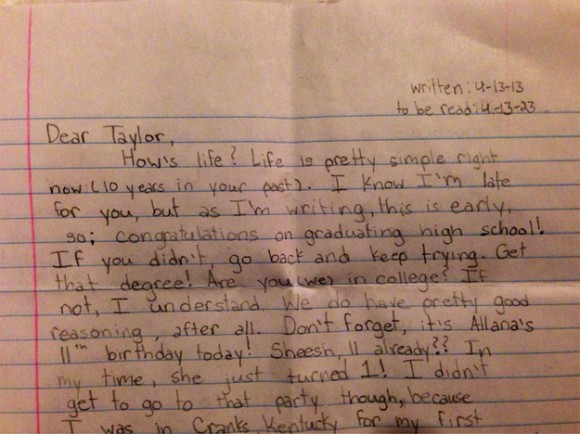 written: 4-13-13
to be read: 4-13-23
Dear Taylor,
How's life? Life is pretty simple right
now (10 years in your past). I know I'm late
for you, but as I'm writing, this is early,
so; congratulations on graduating high school!
If you didn't, go back and keep trying. Get
that degree! Are you (we) in college? If
not, I understand. We do have pretty good
reasoning, after all. Don't forget, it's Allana's
11th birthday today! Sheesh, 11 already?? In
my time, she just turned 1! I didn't
get to go to that party though, because
I was in Cranks, Kentucky for my first